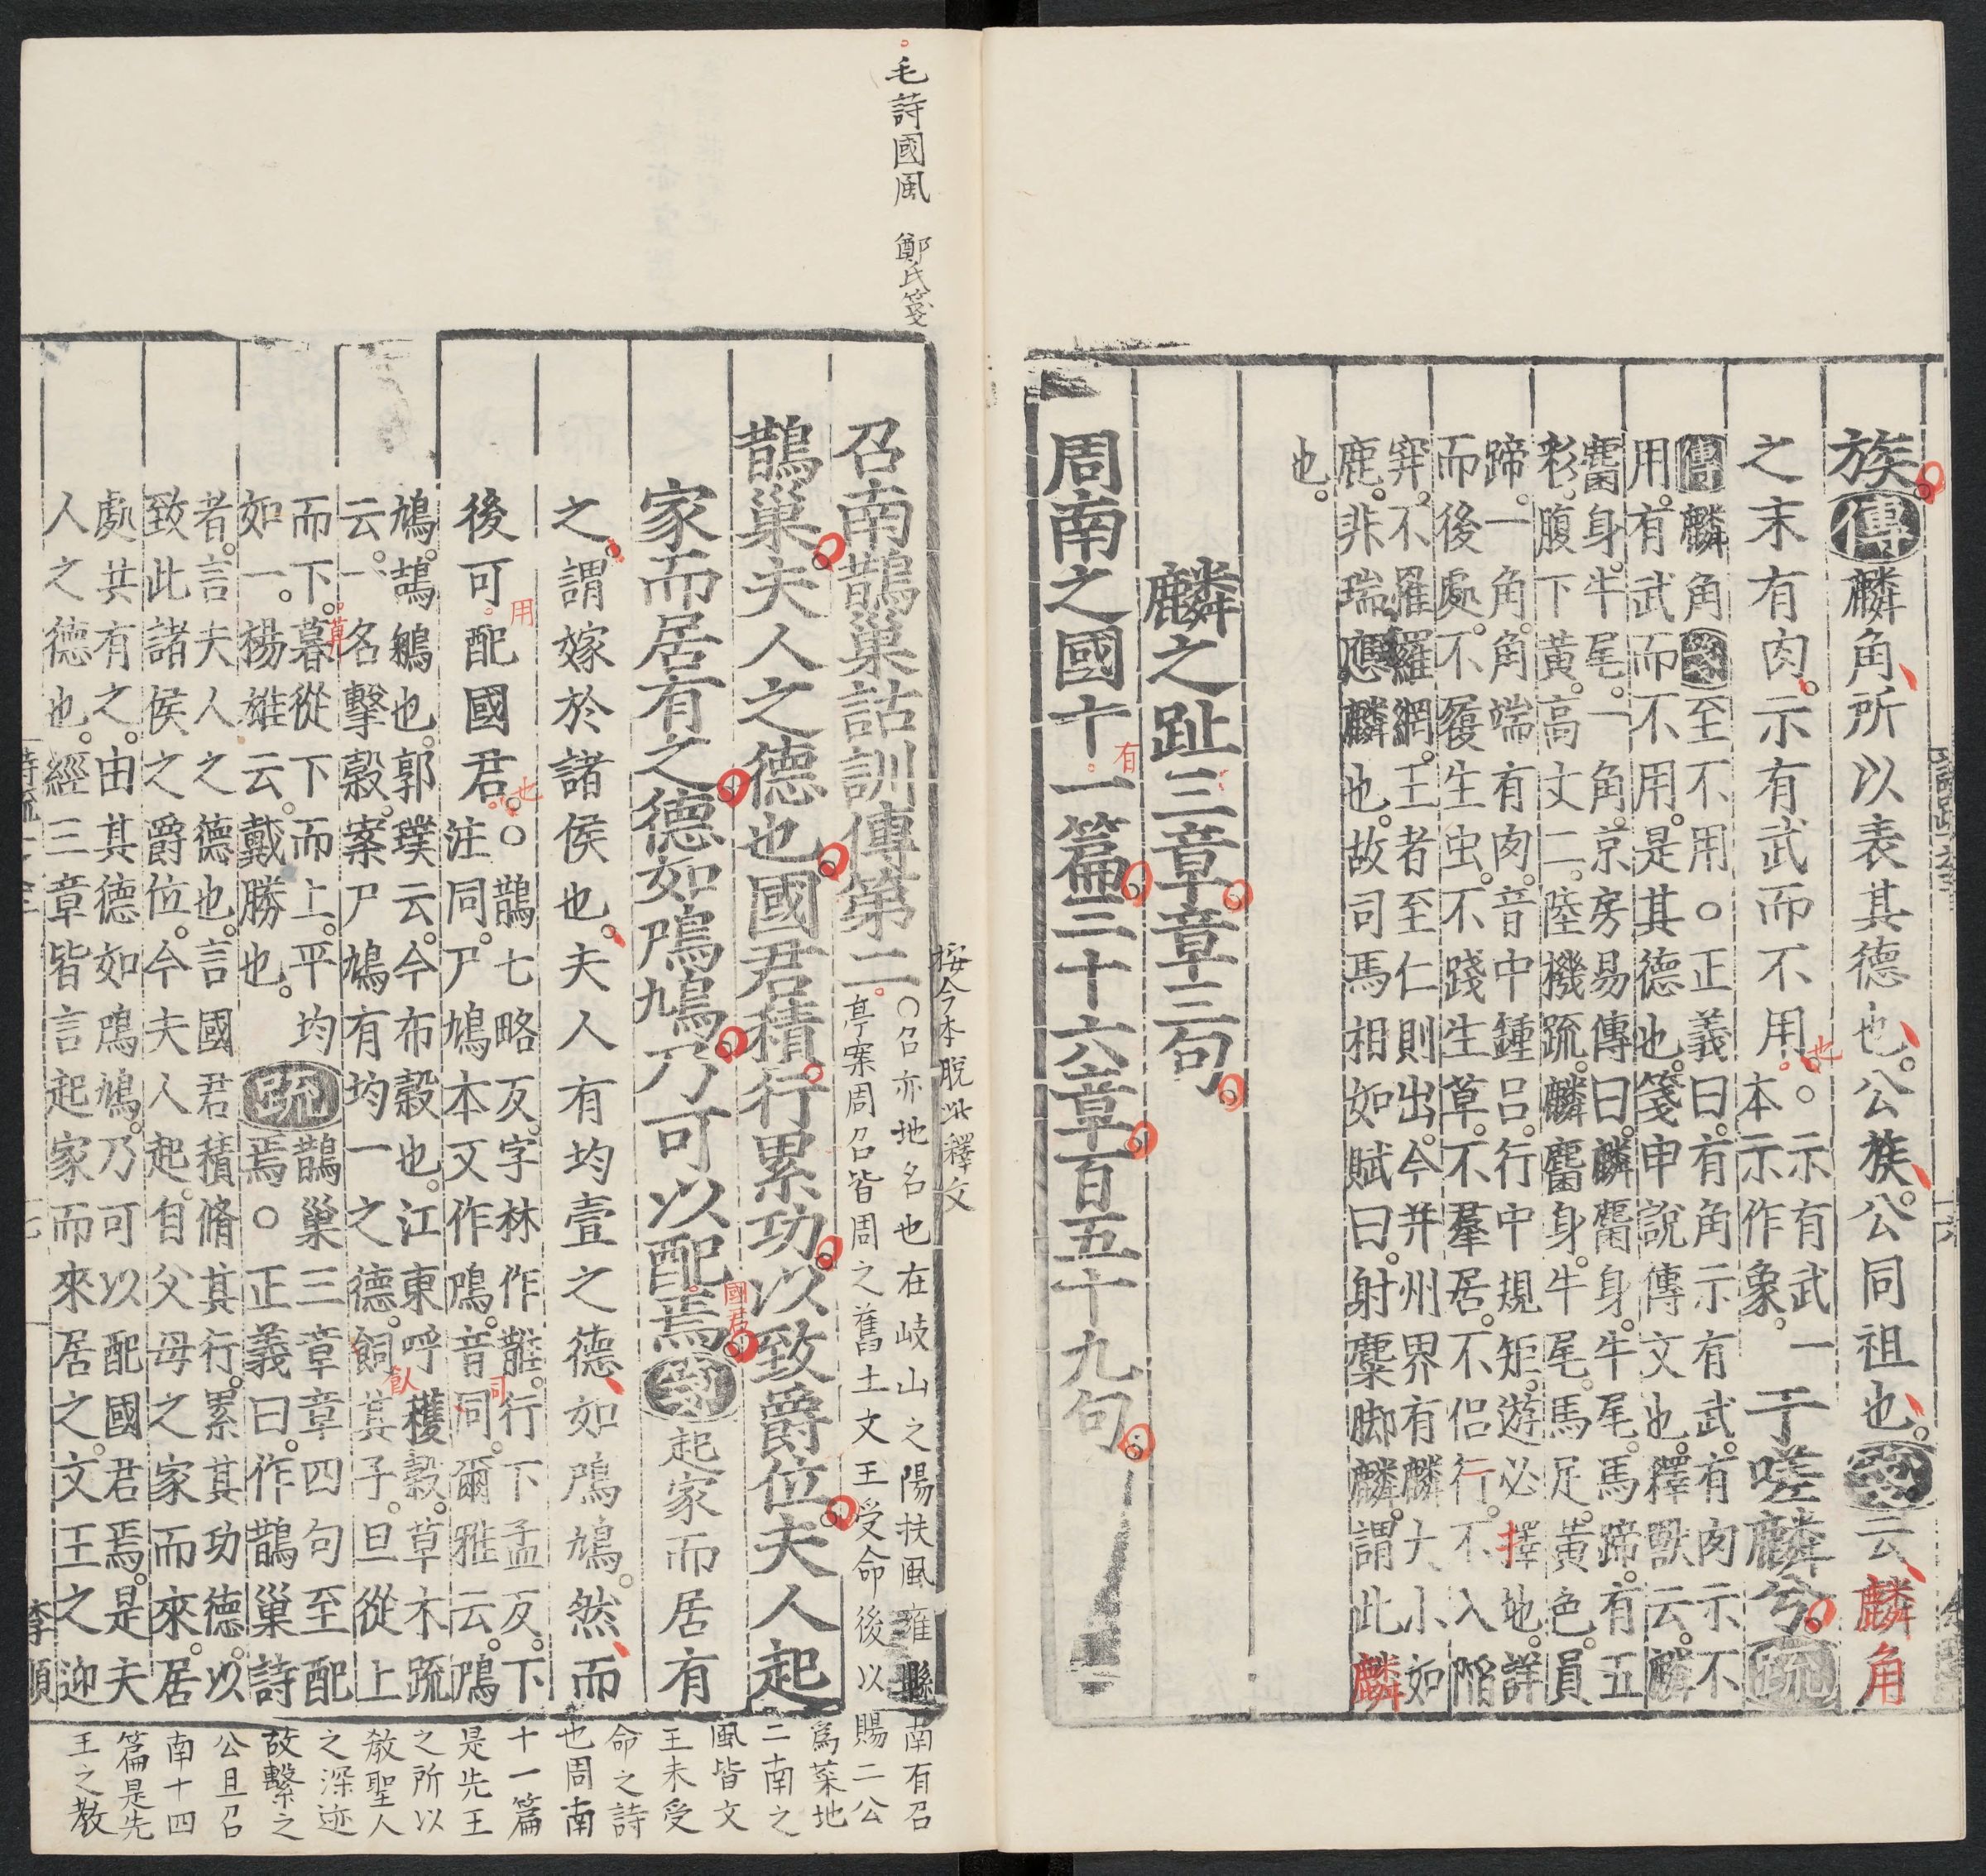 族。傳麟角所以表其德也。公族。公同祖也。箋云麟角
之末有肉示有武而不用。也
○示有武一
本示作象。
于嗟麟兮疏
傳麟角箋至不用○正義曰。有角示有武。有肉示不
用。有武而不用。是其德也。箋申說傳文也。釋獸云。麟
麕身。牛尾。一角。京房易傳曰。麟麕身。牛尾。馬蹄。有五
彩。腹下黃。高丈二。陸機疏。麟麕身。牛尾。馬足。黃色。員
蹄。一角。角端有肉。音中鍾呂。行中規矩。遊必擇地。詳
而後處。不履生虫。不踐生草。不羣居。不侶行。不入陷
穽。不羅羅網。王者至仁則出。今并州界有麟大小如
鹿。非瑞應麟也。故司馬相如賦曰。射麋脚麟。謂此麟
也。
麟之趾三章章三句
周南之國十一篇三十六章百五十九句
有
毛詩國風 鄭氏箋
按今本脫此釋文
召南鵲巢詁訓傳第二
○召亦地名也在岐山之陽扶風雍縣南有召
亭案周召皆周之舊土文王受命後以賜二公
爲菜地
二南之
風皆文
王未受
命之詩
也周南
十一篇
是先王
之所以
敎聖人
之深迹
故繫之
公旦召
南十四
篇是先
王之敎
鵲巢。夫人之德也。國君積行累功。以致爵位。夫人起
家而居有之德如鳲鳩。乃可以配焉箋起家而居有
國君
之。謂嫁於諸侯也。夫人有均壹之德如鳲鳩。然而
後可配國君。
用
也
○鵲七略反。字林作䧿。行下孟反。下
注同。尸鳩本又作鳲。音同。爾雅云。鳲
鳩。鴶鵴也。郭璞云。今布穀也。江東呼穫穀。草木疏
云。一名擊穀。案尸鳩有均一之德。飼其子。旦從上
而下。暮從下而上。平均
如一。楊雄云。戴勝也。
疏
鵲巢三章章四句至配
焉。○正義曰。作鵲巢詩
者。言夫人之德也。言國君積脩其行。累其功德。以
致此諸侯之爵位。今夫人起。自父母之家而來。居
處共有之。由其德如鳲鳩。乃可以配國君焉。是夫
人之德也。經三章皆言起家而來居之。文王之迎
李順